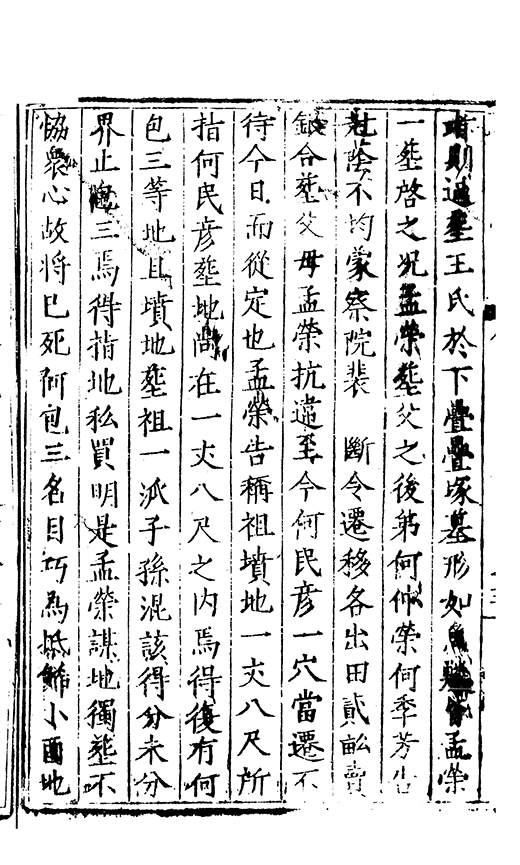 則過塟王氏於下疊疊塚墓形如魚孟荣
一塟啓之况孟荣塟父之後苐何仲荣何季芳告
庇蔭不均蒙察院裴　斷令遷移各出田貳畝賣
銀合塟父母孟荣抗違至今何民彦一穴當遷不
待今日而從定也孟荣告稱祖墳地一丈八尺所
指何民彦塟地尚在一丈八尺之内焉得復有何
包三等地且墳地塟祖一派子孫混該得分未分
界止包三焉得指地私買明是孟荣謀地獨塟不
恊衆心故将已死何包三名目巧為抵飾小面地